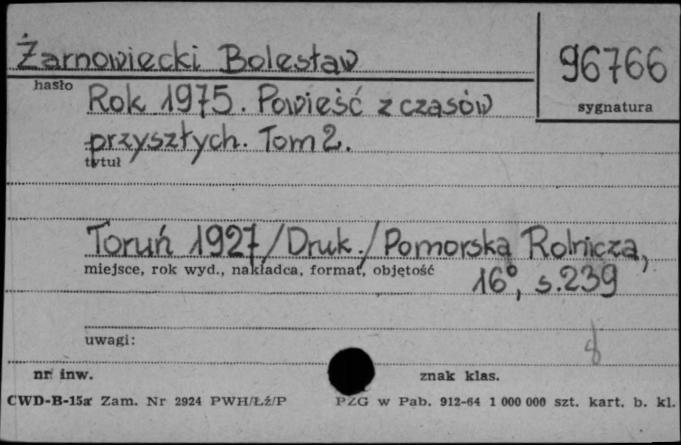 Żarnowiecki Bolesław
96766
hasło
sygnatura
Rok 1975. Powieść z czasów
przyszłych. Tom 2.
tytuł
Toruń 1927/Druk./Pomorska Rolnicza,
miejsce, rok wyd., nakładca, format, objętość
16°, s.239
uwagi:
nr inw.
znak klas.
CWD-B-15a Zam. Nr 2924 PWH/Łź/P
PZG w Pab. 912-64 1 000 000 szt. kart. b. kl.